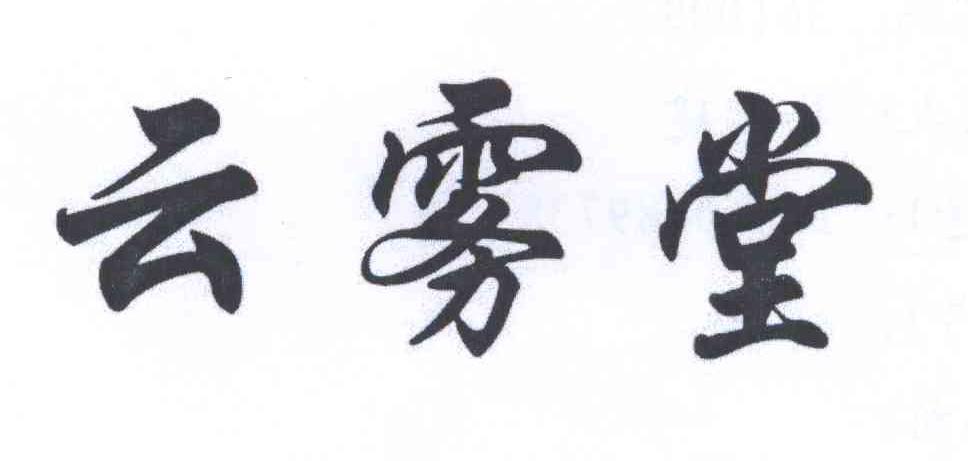 云雾堂